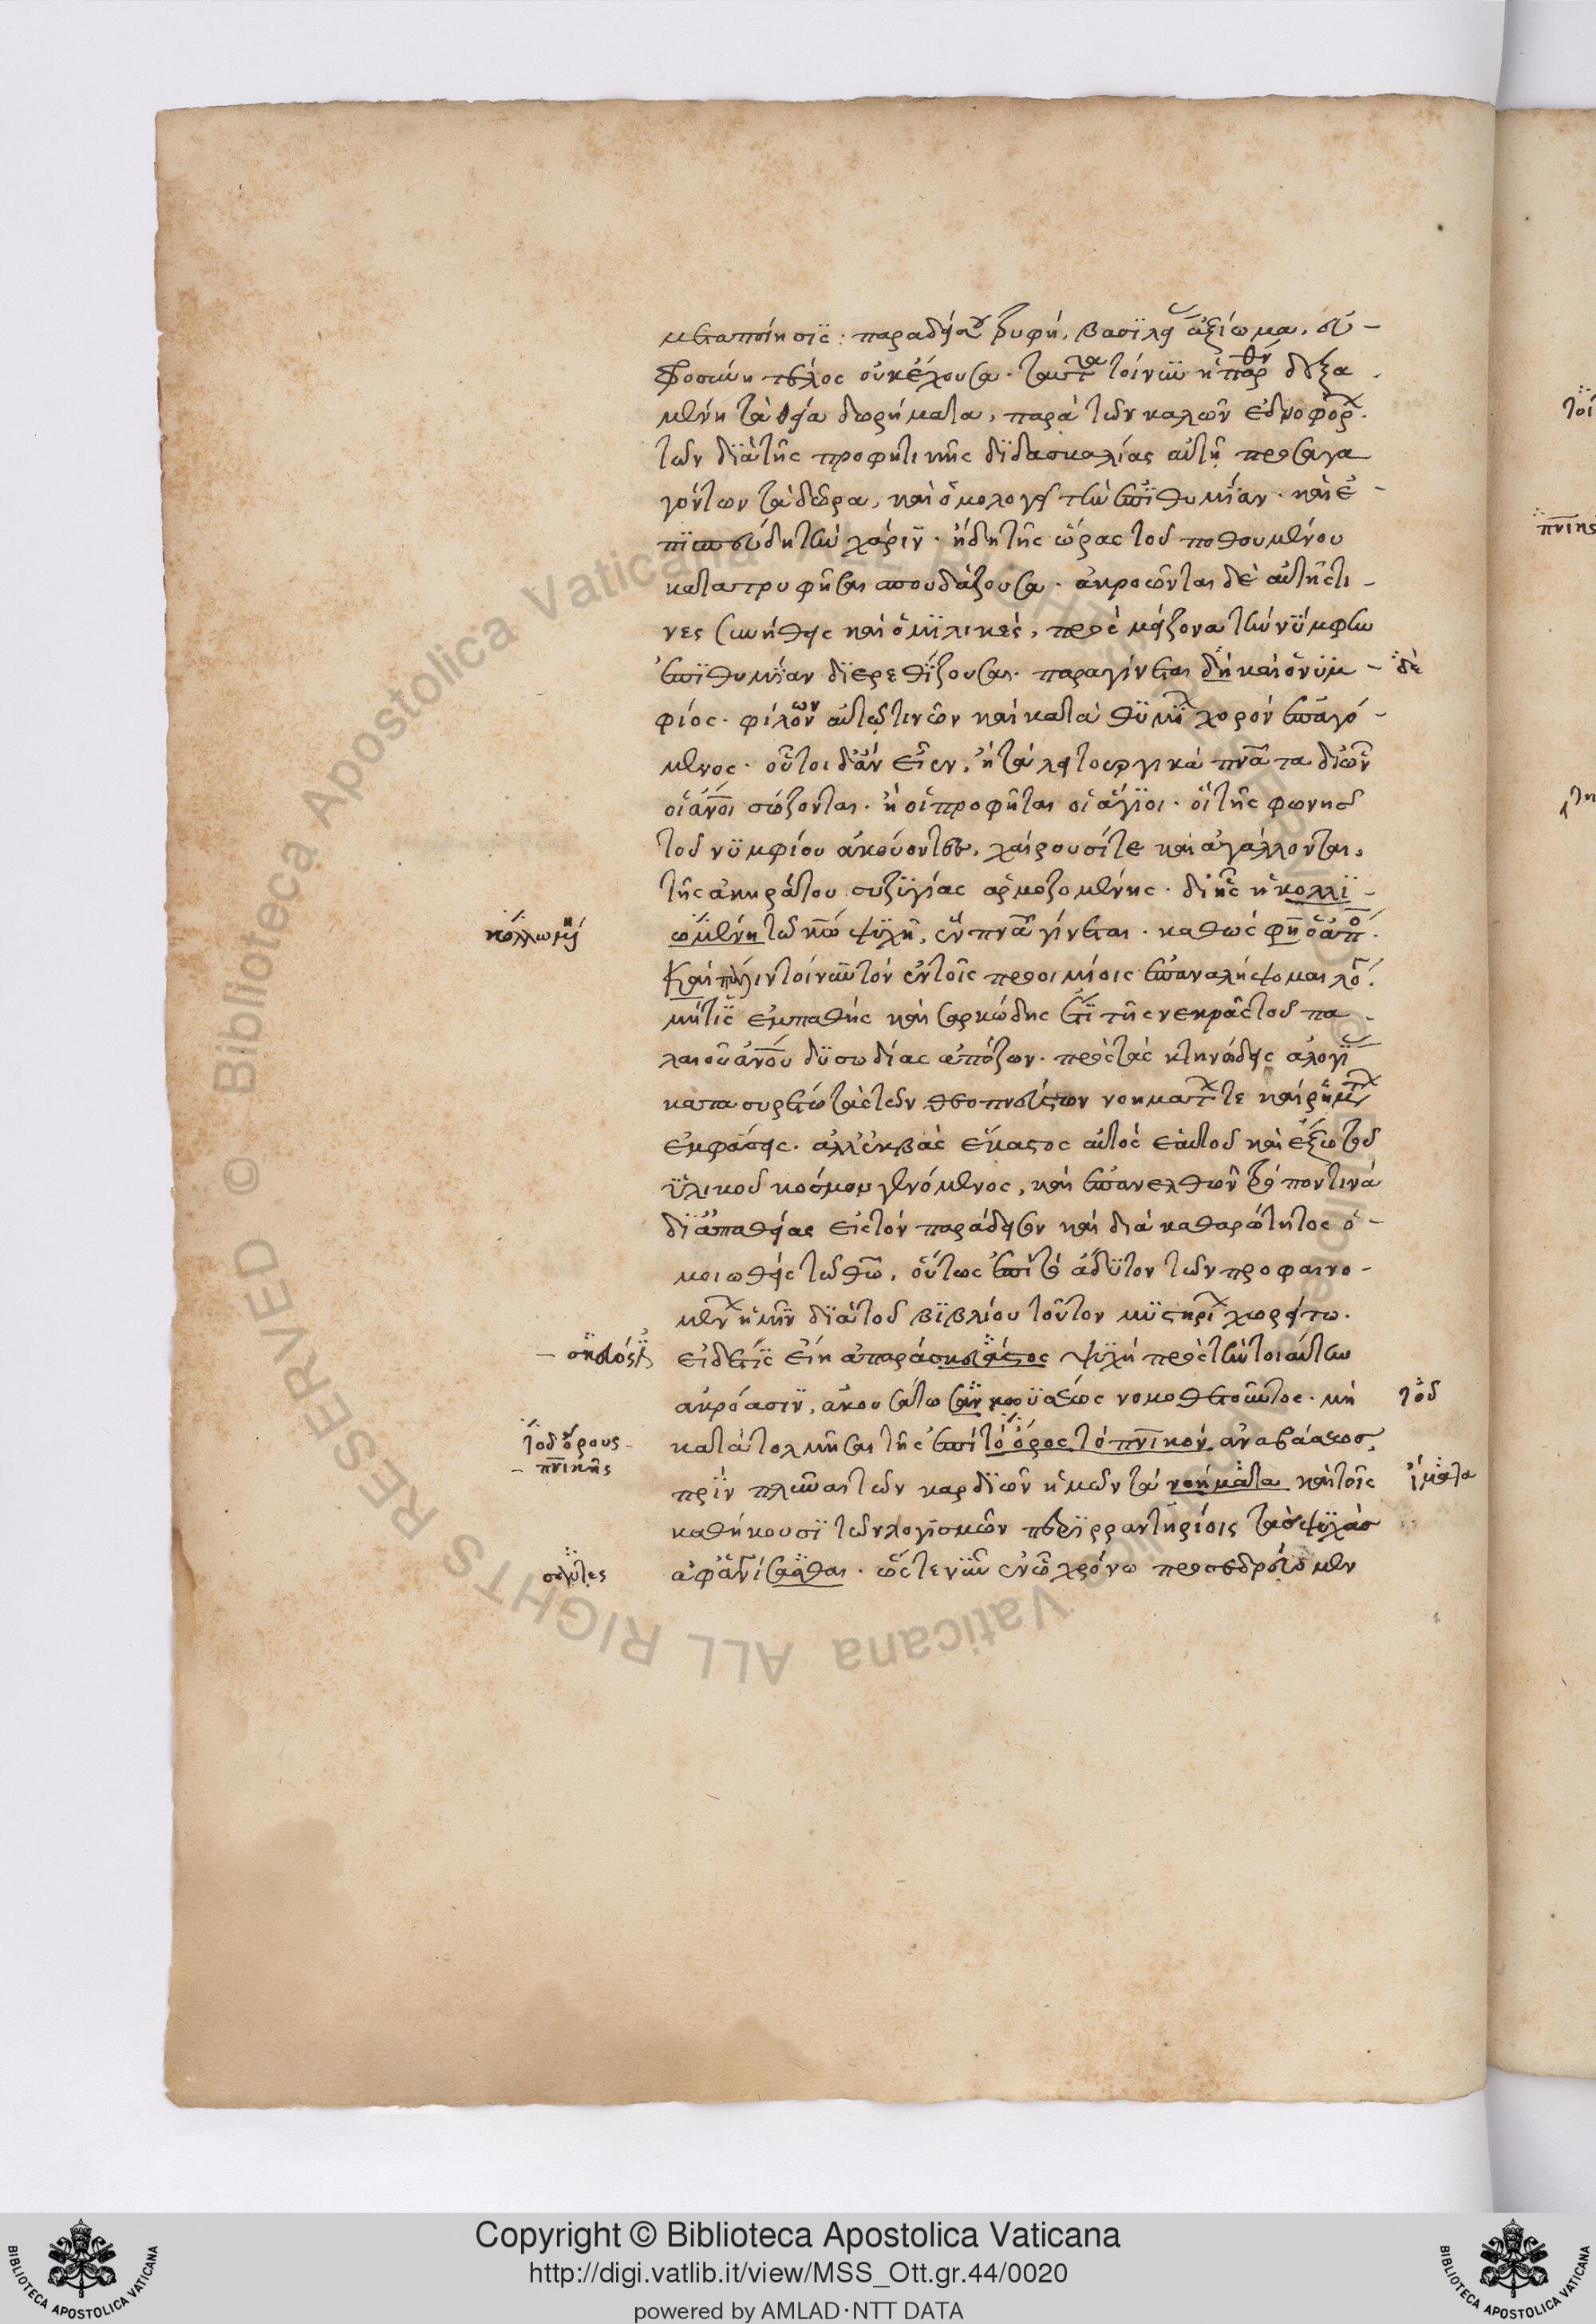 μεταποίησις: παραδείσου τρυφή, βασιλεί ἀξίωμα, εὐ-
φροσύνη τέλος οὐκ ἔχουσα. ταῦτα τοίνυν ἡ παρθέν δεξα-
μένη τὰ θεῖα δωρήματα, παρὰ τῶν καλῶν ἑδνοφόρ.
τῶν διὰ τῆς προφητικῆς διδασκαλίας αὐτῇ προσαγα
γόντων τὰ δῶρα, καὶ ὁμολογεῖ τὴν ἐπιθυμίαν. καὶ ἐ-
πισπεύδη τὴν χάριν. ἤδη τῆς ὥρας τοῦ ποθουμένου
κατατρυφῆσαι σπουδάζουσα. ἀκροῶνται δὲ αὐτῆς τι-
νες συνήθεις καὶ ὁμίλικες, πρὸς μείζονα τὴν νύμφην
ἐπιθυμίαν διερεθίζουσαι. παραγίνεται δὴ καὶ ὁ νυμ- δὲ
φίος. φίλον ων αὐτῷ τινῶν καὶ καταθυμί χορὸν ἐπαγό-
μενος. οὗτοι δ' ἂν εἶεν, ἢ τὰ λειτουργικὰ πνα τα δι' ὧν
οἱ ἄνοι σώζονται. ἢ οἱ προφῆται οἱ ἅγιοι. οἳ τῆς φωνησ
τοῦ νυμφίου ἀκούοντες, χαίρουσί τε καὶ ἀγάλλονται,
τῆς ἀκηράτου συζυγίας ἁρμοζομένης. δι' ἧς ἡ κολλι-
κολλωμένη ωμένη τῷ κῷ ψυχή, ἓν πνα γίνεται. καθώς φη ὁ ἀπο.
καὶ πάλιν τοίνυν τὸν ἐν τοῖς προοιμίοις ἐπαναλήψομαι λό.
μή τις ἐμπαθὴς καὶ σαρκώδης ἔτι τῆς νεκρᾶς τοῦ πα-
λαιοῦ ἀνου δυσωδίας ἀπόζων. πρὸς τὰς κτηνώδεις ἀλογί
κατασυρέτω τὰς τῶν θεοπνεύστων νοημάτ τε καὶ ῥημτ
ἐμφάσεις. ἀλλ' ἐκβὰς ἕκαστος αὐτὸς ἑαυτοῦ καὶ ἔξω τοῦ
ὑλικοῦ κόσμου γενόμενος, καὶ ἐπανελθὼν τρόπον τινὰ
δι' ἀπαθείας εἰς τὸν παράδεισον καὶ διὰ καθαρότητος ὁ-
μοιωθεὶς τῷ θῷ, οὕτως ἐπὶ τὸ ἄδυτον τῶν προφαινο-
μέν ἡμῖν διὰ τοῦ βιβλίου τούτου μυστηρί χωρείτω.
εἰ δέ τις εἴη ἀπαράσκεύαστος ψυχὴ πρὸς τὴν τοιαύτην
ἀκρόασιν, ἀκουσάτω μωϋσέως νομοθετοῦντος. μὴ τοῦ
τοῦ ὄρους κατὰ τολμῆσαι τῆς ἐπὶ τὸ ὄρος τὸ πνικὸν ἀναβάσεωσ,
πνικῆς πρὶν πλῦναι τῶν καρδιῶν ἡμῶν τὰ νοήματα καὶ τοῖς ἱμάτια
καθήκουσι τῶν λογισμῶν περιρραντηρίοις τὰσ ψυχὰσ
ἀφαγνίσασθαι. ὥστε νῦν ἐν ᾧ χρόνω προσεδρεύομεν